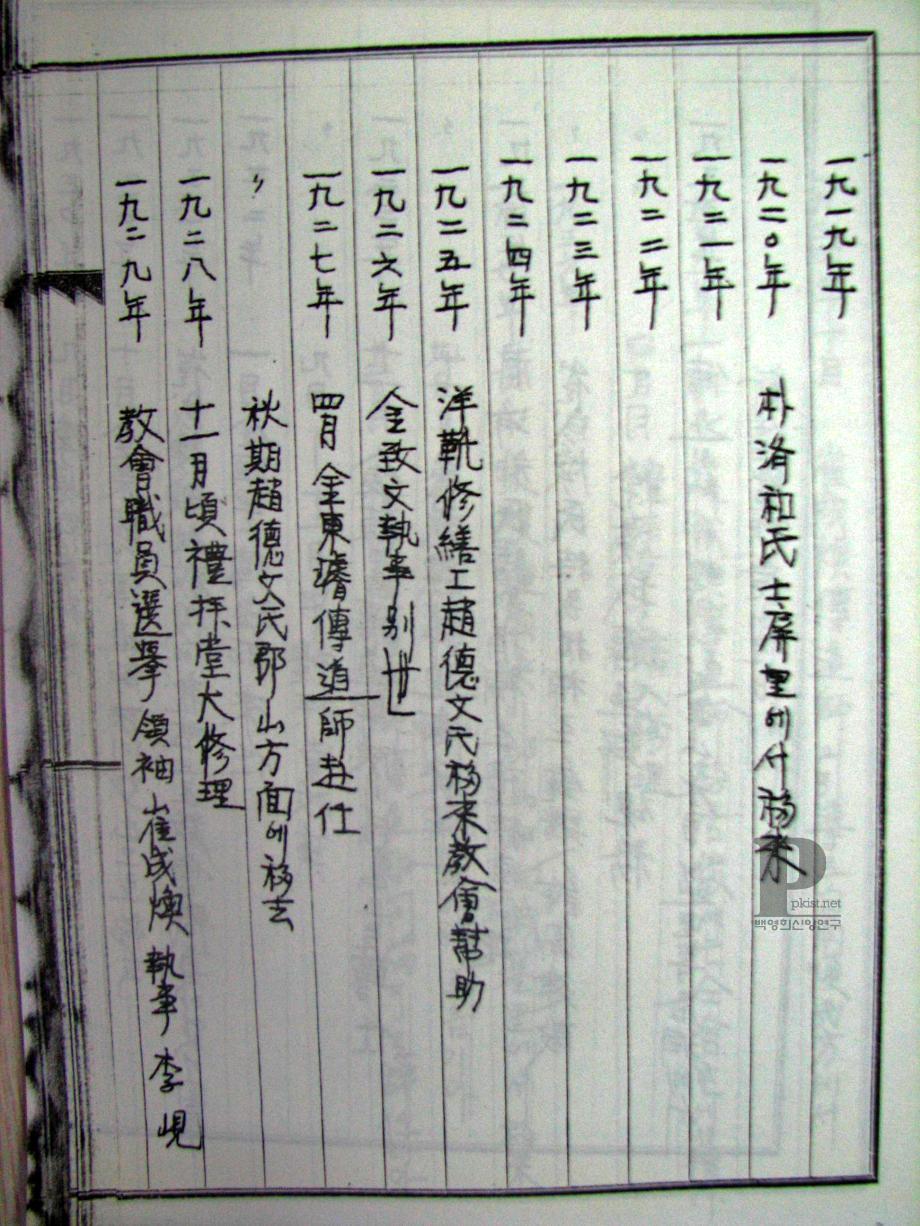 一九一九年
一九二〇年 朴洛和氏 士屏里에서 移来
一九二一年
一九二二年
一九二三年
一九二四年
一九二五年 洋靴修繕工趙德文氏移来教會幇助
一九二六年 金致文執事別世
一九二七年 四月 金東 傳道師赴任
〃 秋期趙德文氏郡山方面에移去
一九二八年 十一月頃禮拝堂大修理
一九二九年 教會職員選挙 領袖 崔成煥 執事 李峴
P
pkist.net
백영희신앙연구